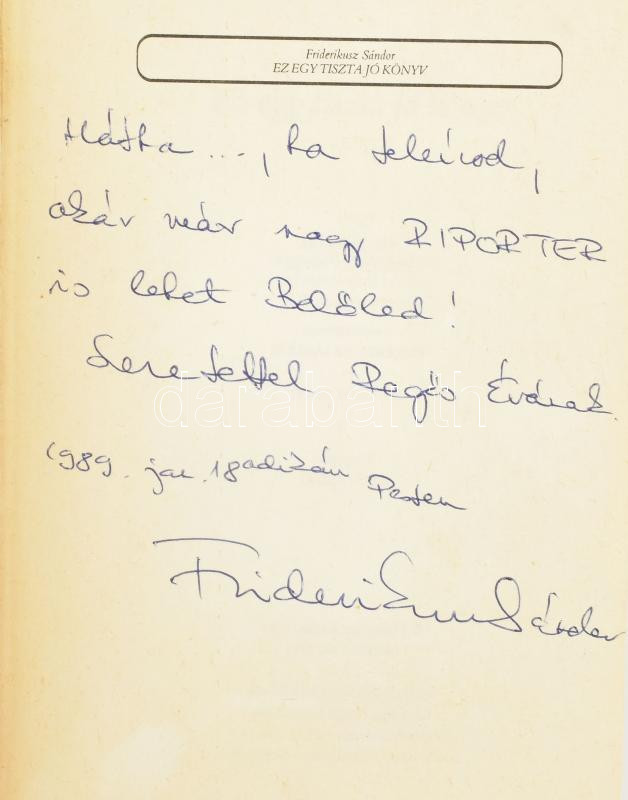 Friderikusz Sándor
EZ EGY TISZTA JÓ KÖNYV
Hátha ..., ha teleírod,
akár már nagy RIPORTER
is lehet Belőled!
Szeretettel Regős Évának
1989. jan. 18adikán Pesten
Friderikusz Sándor
darabanth